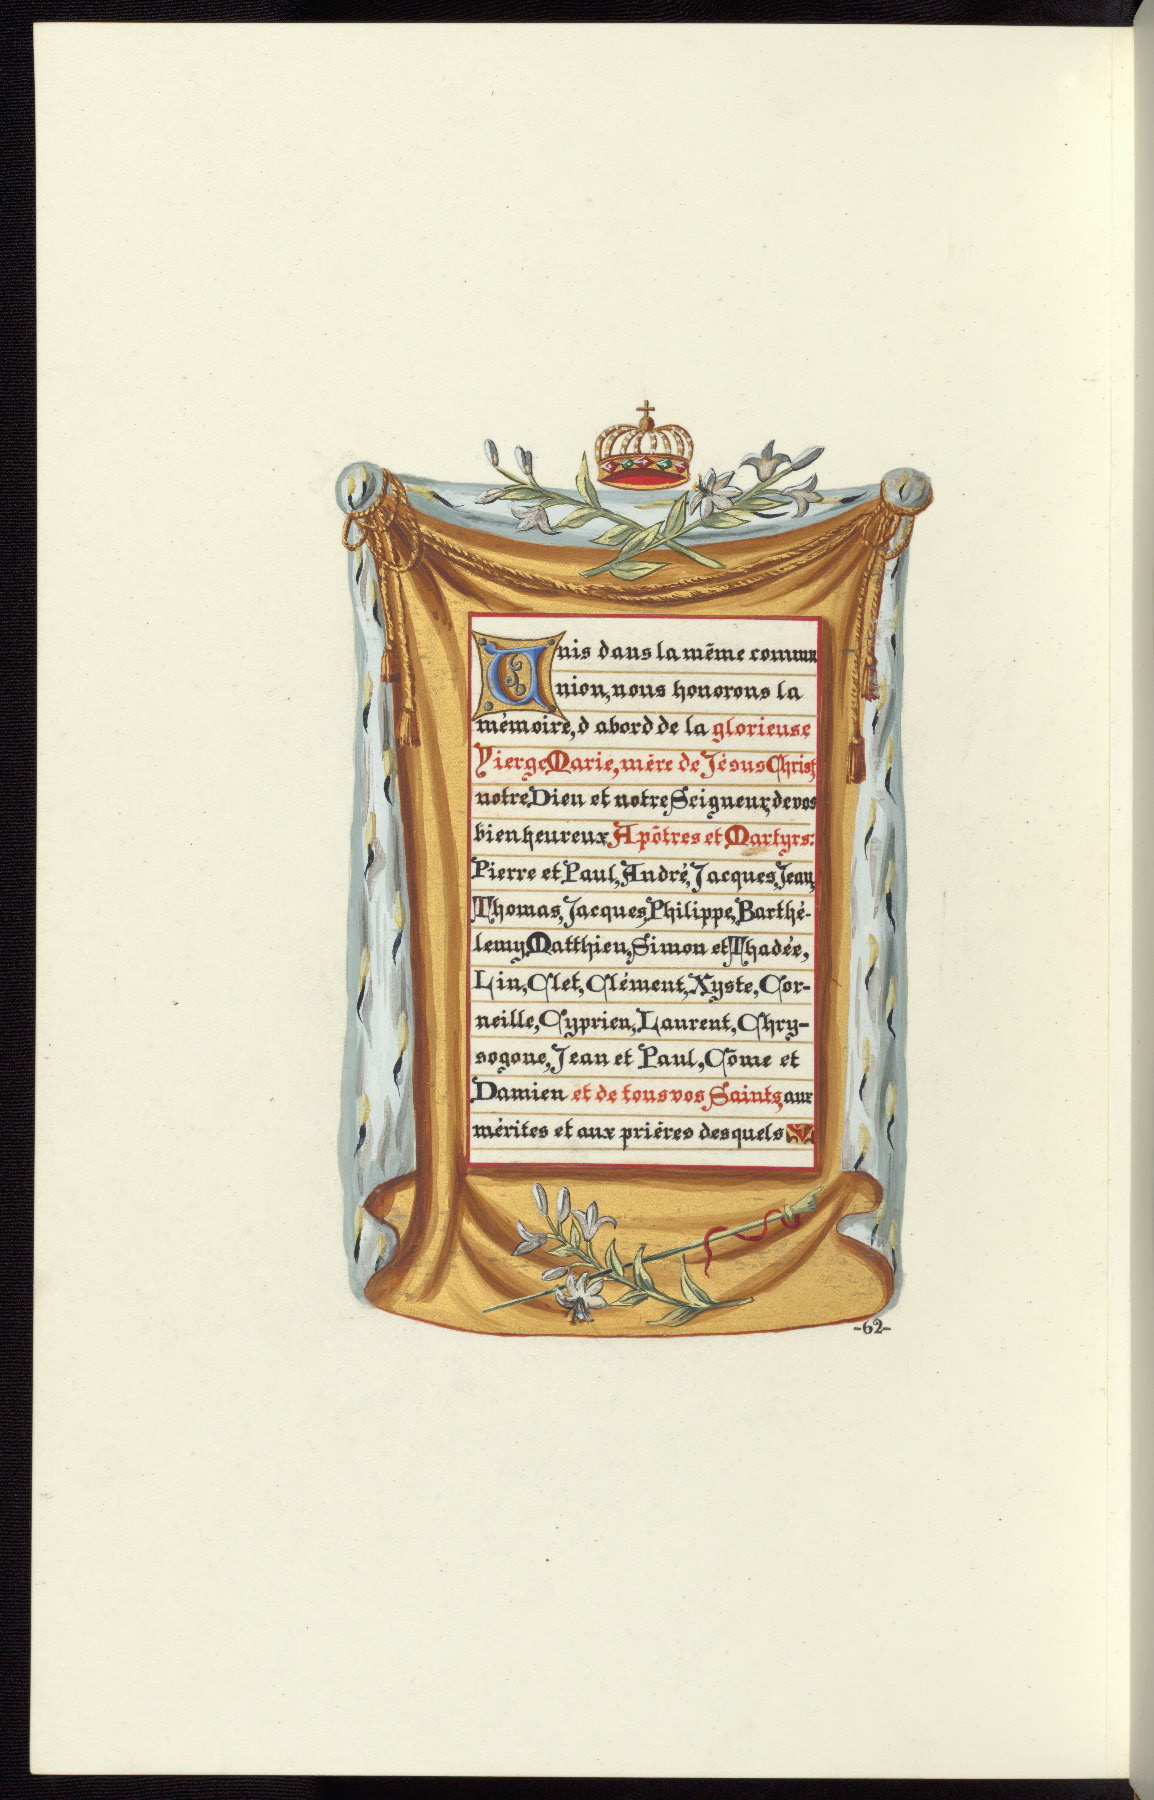 Unis dans la même commu
nion, nous honorons la
mémoire, d abord de la glorieuse
Vierge Marie, mère de Jésus Christ
notre Dieu et notre Seigneur, de vos
bienheureux Apôtres et Martyrs:
Pierre et Paul, André, Jacques, Jean,
Thomas, Jacques, Philippe, Barthé-
lemy, Matthieu, Simon et Thadée,
Lin, Clet, Clément, Xyste, Cor-
neille, Cyprien, Laurent, Chry-
sogone, Jean et Paul, Côme et
Damien et de tous vos Saints, aux
mérites et aux prières desquels
-62-